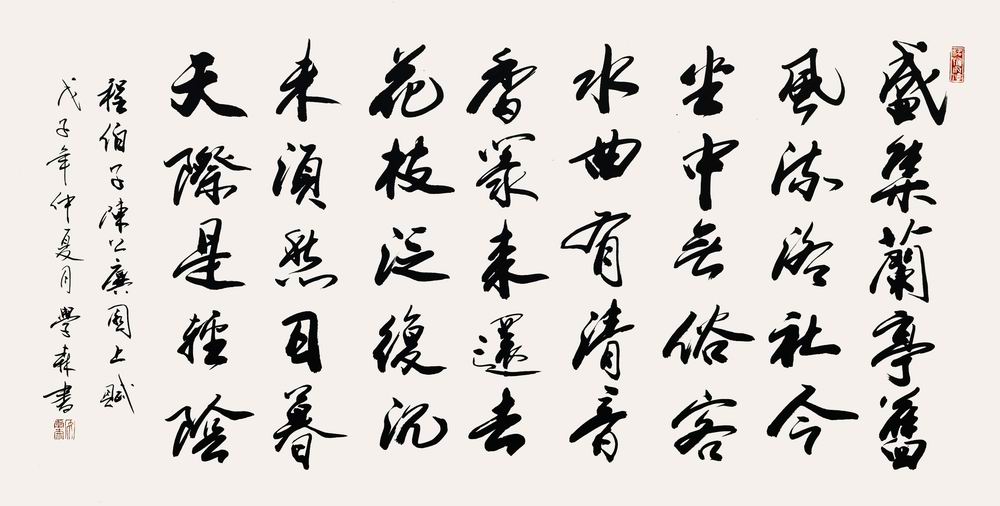 盛集蘭亭舊
風流洛社今
坐中無俗客
水曲有清音
香篆来還去
花枝泛復沉
未須愁日暮
天際是輕陰
程伯子陳公廙園上賦
戊子年仲夏月學森書